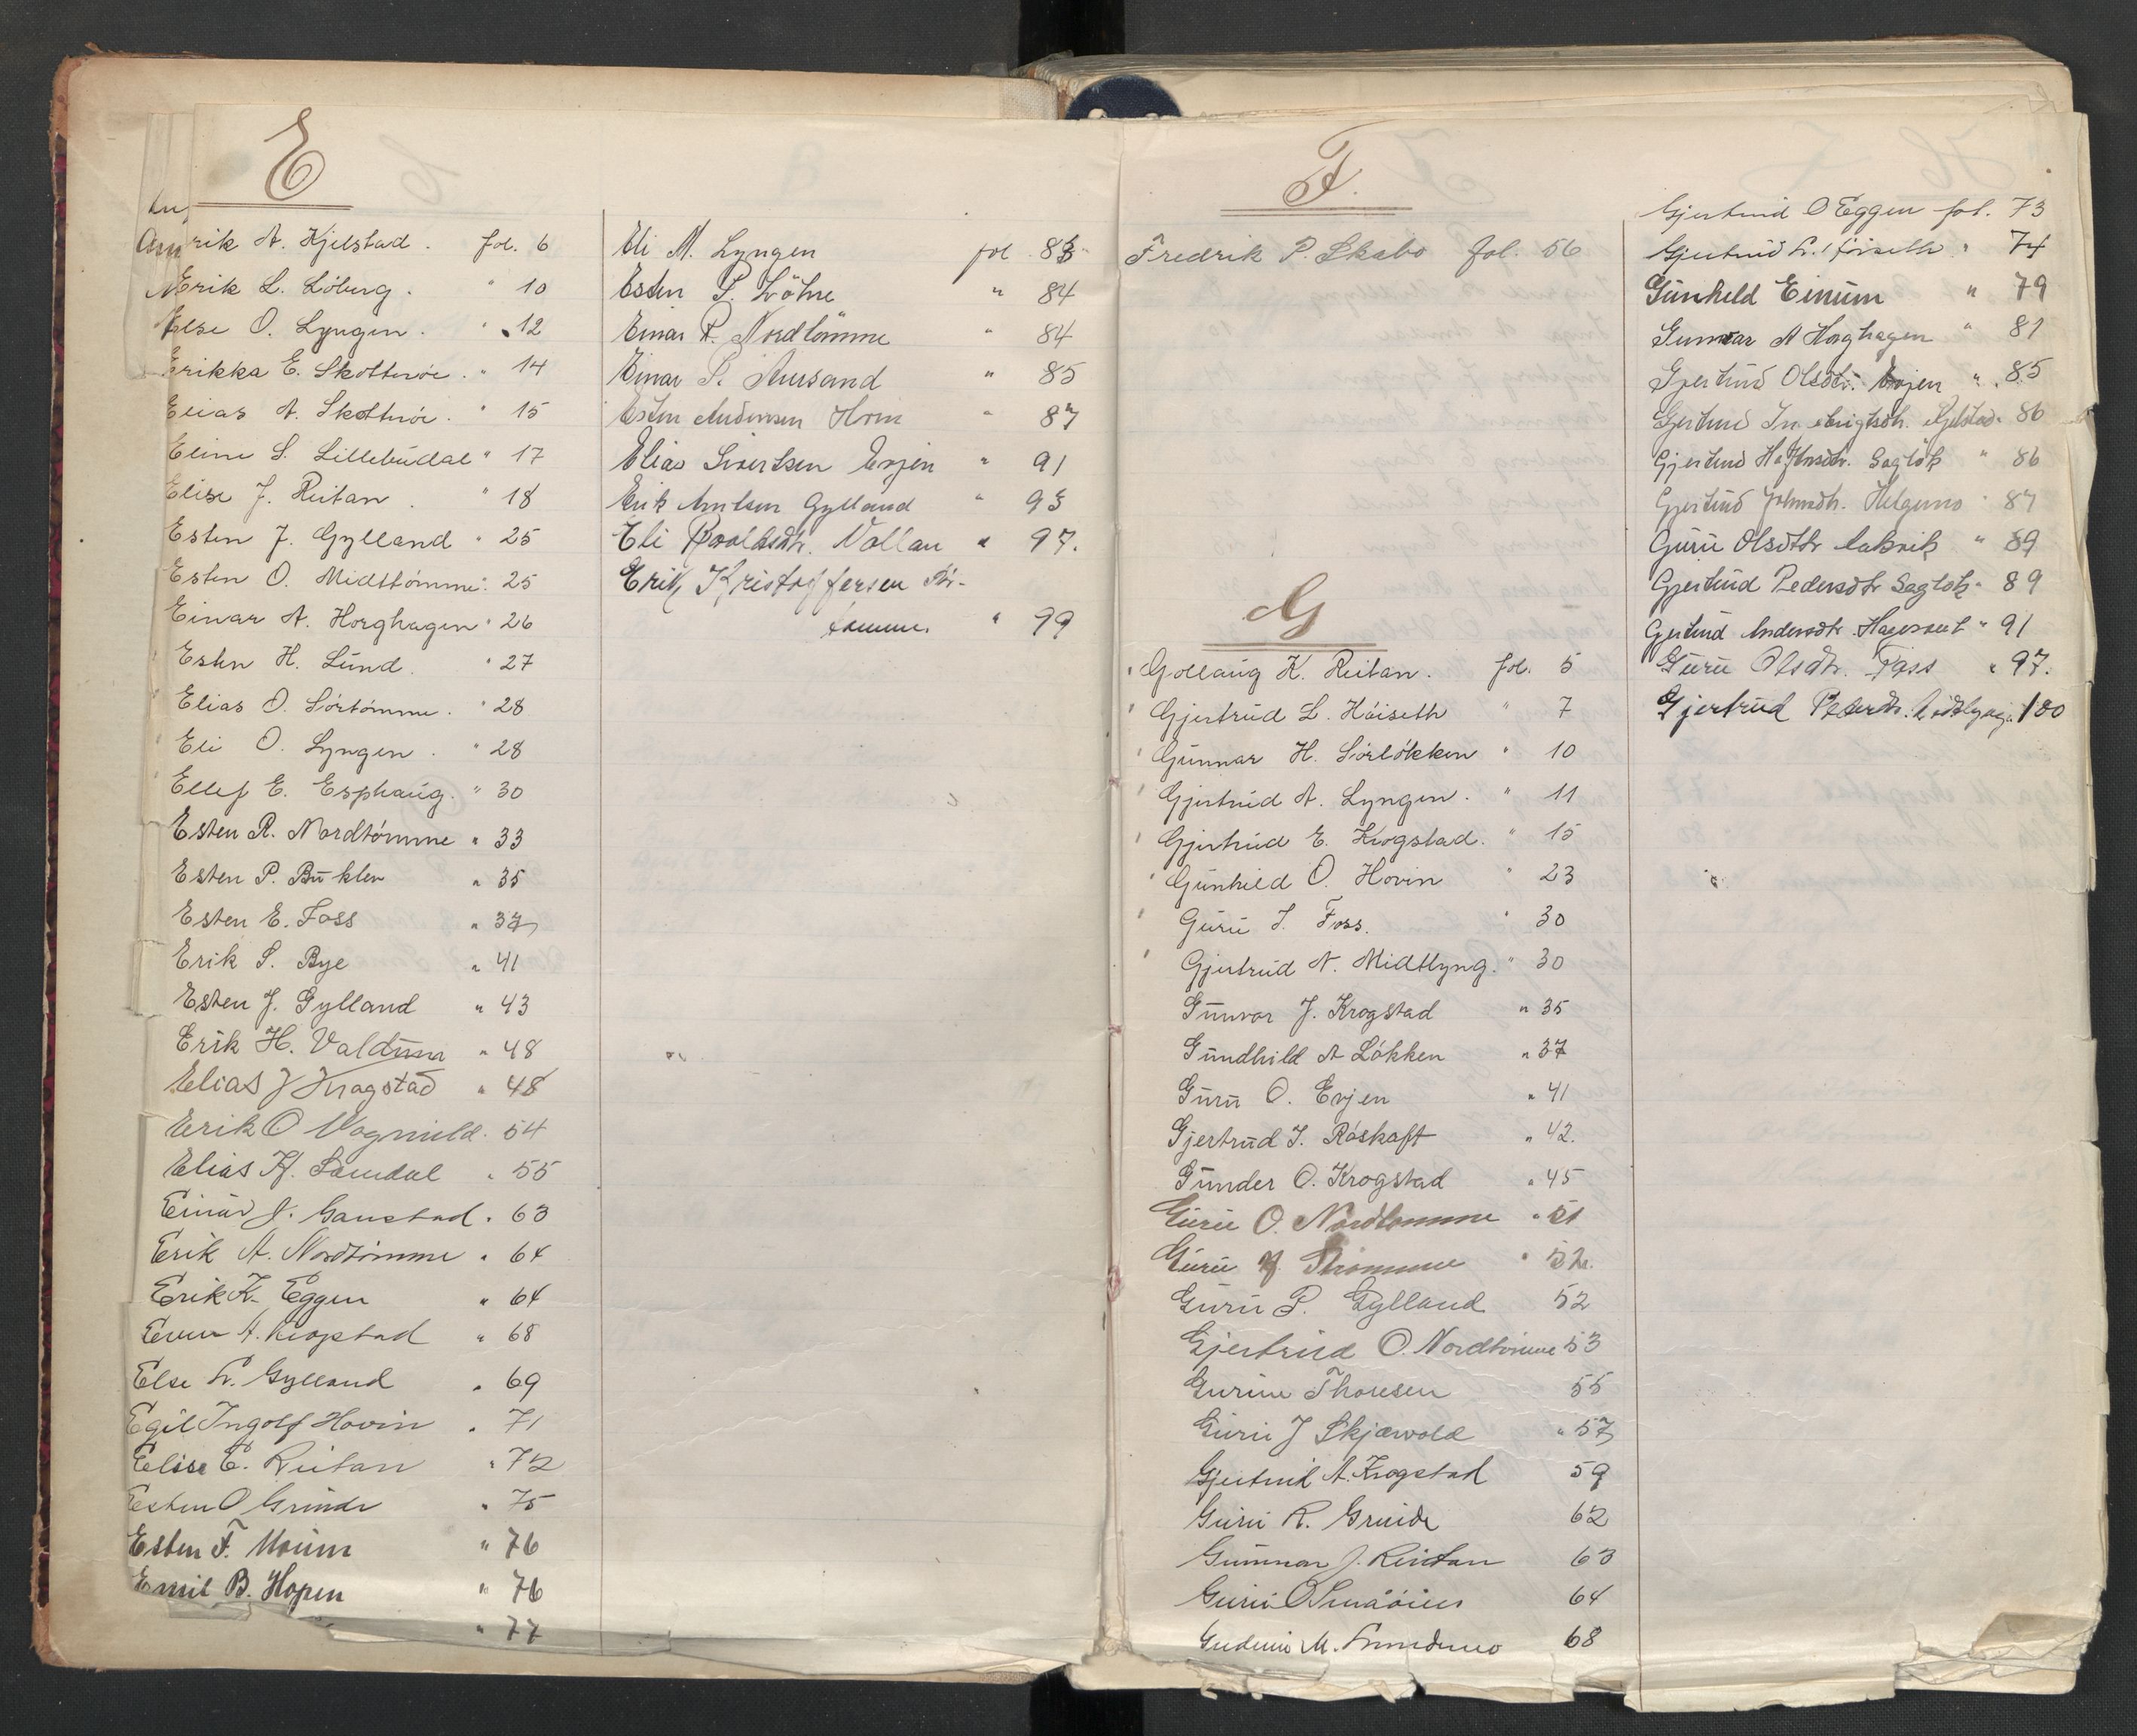 E
Erik A. Kjelstad . fol. 6
Erik L. Löberg . " 10
Else O. Lyngen . " 12
Erikka E. Skottvoi . " 14
Elias A. Skottvoi . " 15
Eline S. Lillebudal " 17
Elise J. Reitan . " 18
Esten J. Gylland " 25
Esten O. Midttömme " 25
Einar A. Horghagen " 26
Esten H. Lund . " 27
Elias O. Sörtömme . " 28
Eli O. Lyngen . " 28
Ellef E. Esphaug . " 30
Esten R. Nordtömme " 33
Esten P. Buklev " 35
Esten E. Foss " 37
Erik S. Bye " 41
Esten J. Gylland " 43
Erik H. Valdum " 48
Elias J Krogstad " 48
Erik O Vognild . 54
Elias K. Samdal " 55
Einar J. Ganstad . 63
Erik A. Nordtömme " 64
Erik K. Eggen " 64
Even A. Krogstad " 68
Else L. Gylland " 69
Egil Ingolf Hovin . 71
Elise E. Reitan " 72
Esten O Grinde " 75
Esten F. Moum " 76
Emil B. Hopen " 76
" 77
Eli M. Lyngen fol. 83
Esten P. Löhre " 84
Einar R. Nordtömme " 84
Einar P. Aursand " 85
Esten Andersen Horn " 87
Elias Sivertsen Evjen " 91
Erik Arntsen Gylland " 93
Eli Roaldsdtr. Vollan " 97.
Erik Kristoffersen Nor-
tömme. " 99
F.
Fredrik P. Skabo fol. 56
G
Gollaug K. Reitan . fol. 5
Gjertrud L. Höiseth " 7
Gunnar H. Sörlökken " 10
Gjertrud A. Lyngen . " 11
Gjertrud E. Krogstad . " 15
Gunhild O. Hovin " 23
Guru I. Foss. " 30
Gjertrud N. Midtlyng . " 30
Gunvor J. Krogstad " 35
Gundhild A Lökken " 37
Guru O. Evjen " 41
Gjertrud I. Röskaft " 42.
Gunder O. Krogstad " 45
Guru O. Nordtömme " 51
Guru J. Strömme " 52.
Guru P. Gylland 52
Gjertrud O. Nordtömme 53
Gurine Thoresen 55
Guru J Skjærvold " 57
Gjertrud A. Krogstad 59
Guru R. Grinde 62
Gunnar J. Reitan 63
Guru O Småöien 64
M. 68
Gjertrud O Eggen fol. 73
Gjertrud L. Höiseth " 74
Gunhild Einum " 79
Gunnar A Horghagen " 81
Gjertrud Olsdtr. Evjen " 85
Gjertrud Kjelstad " 86
Gjertrud Saglök " 86
Gjertrud Johnsdtr. Helgemo " 87
Guru Olsdtr " 89
Gjertrud Pedersdtr Saglök " 89
Gjertrud Andersdtr. " 91
Guru Olsdtr. Foss " 97.
Gjertrud Pedersdtr. Midtlyng " 100